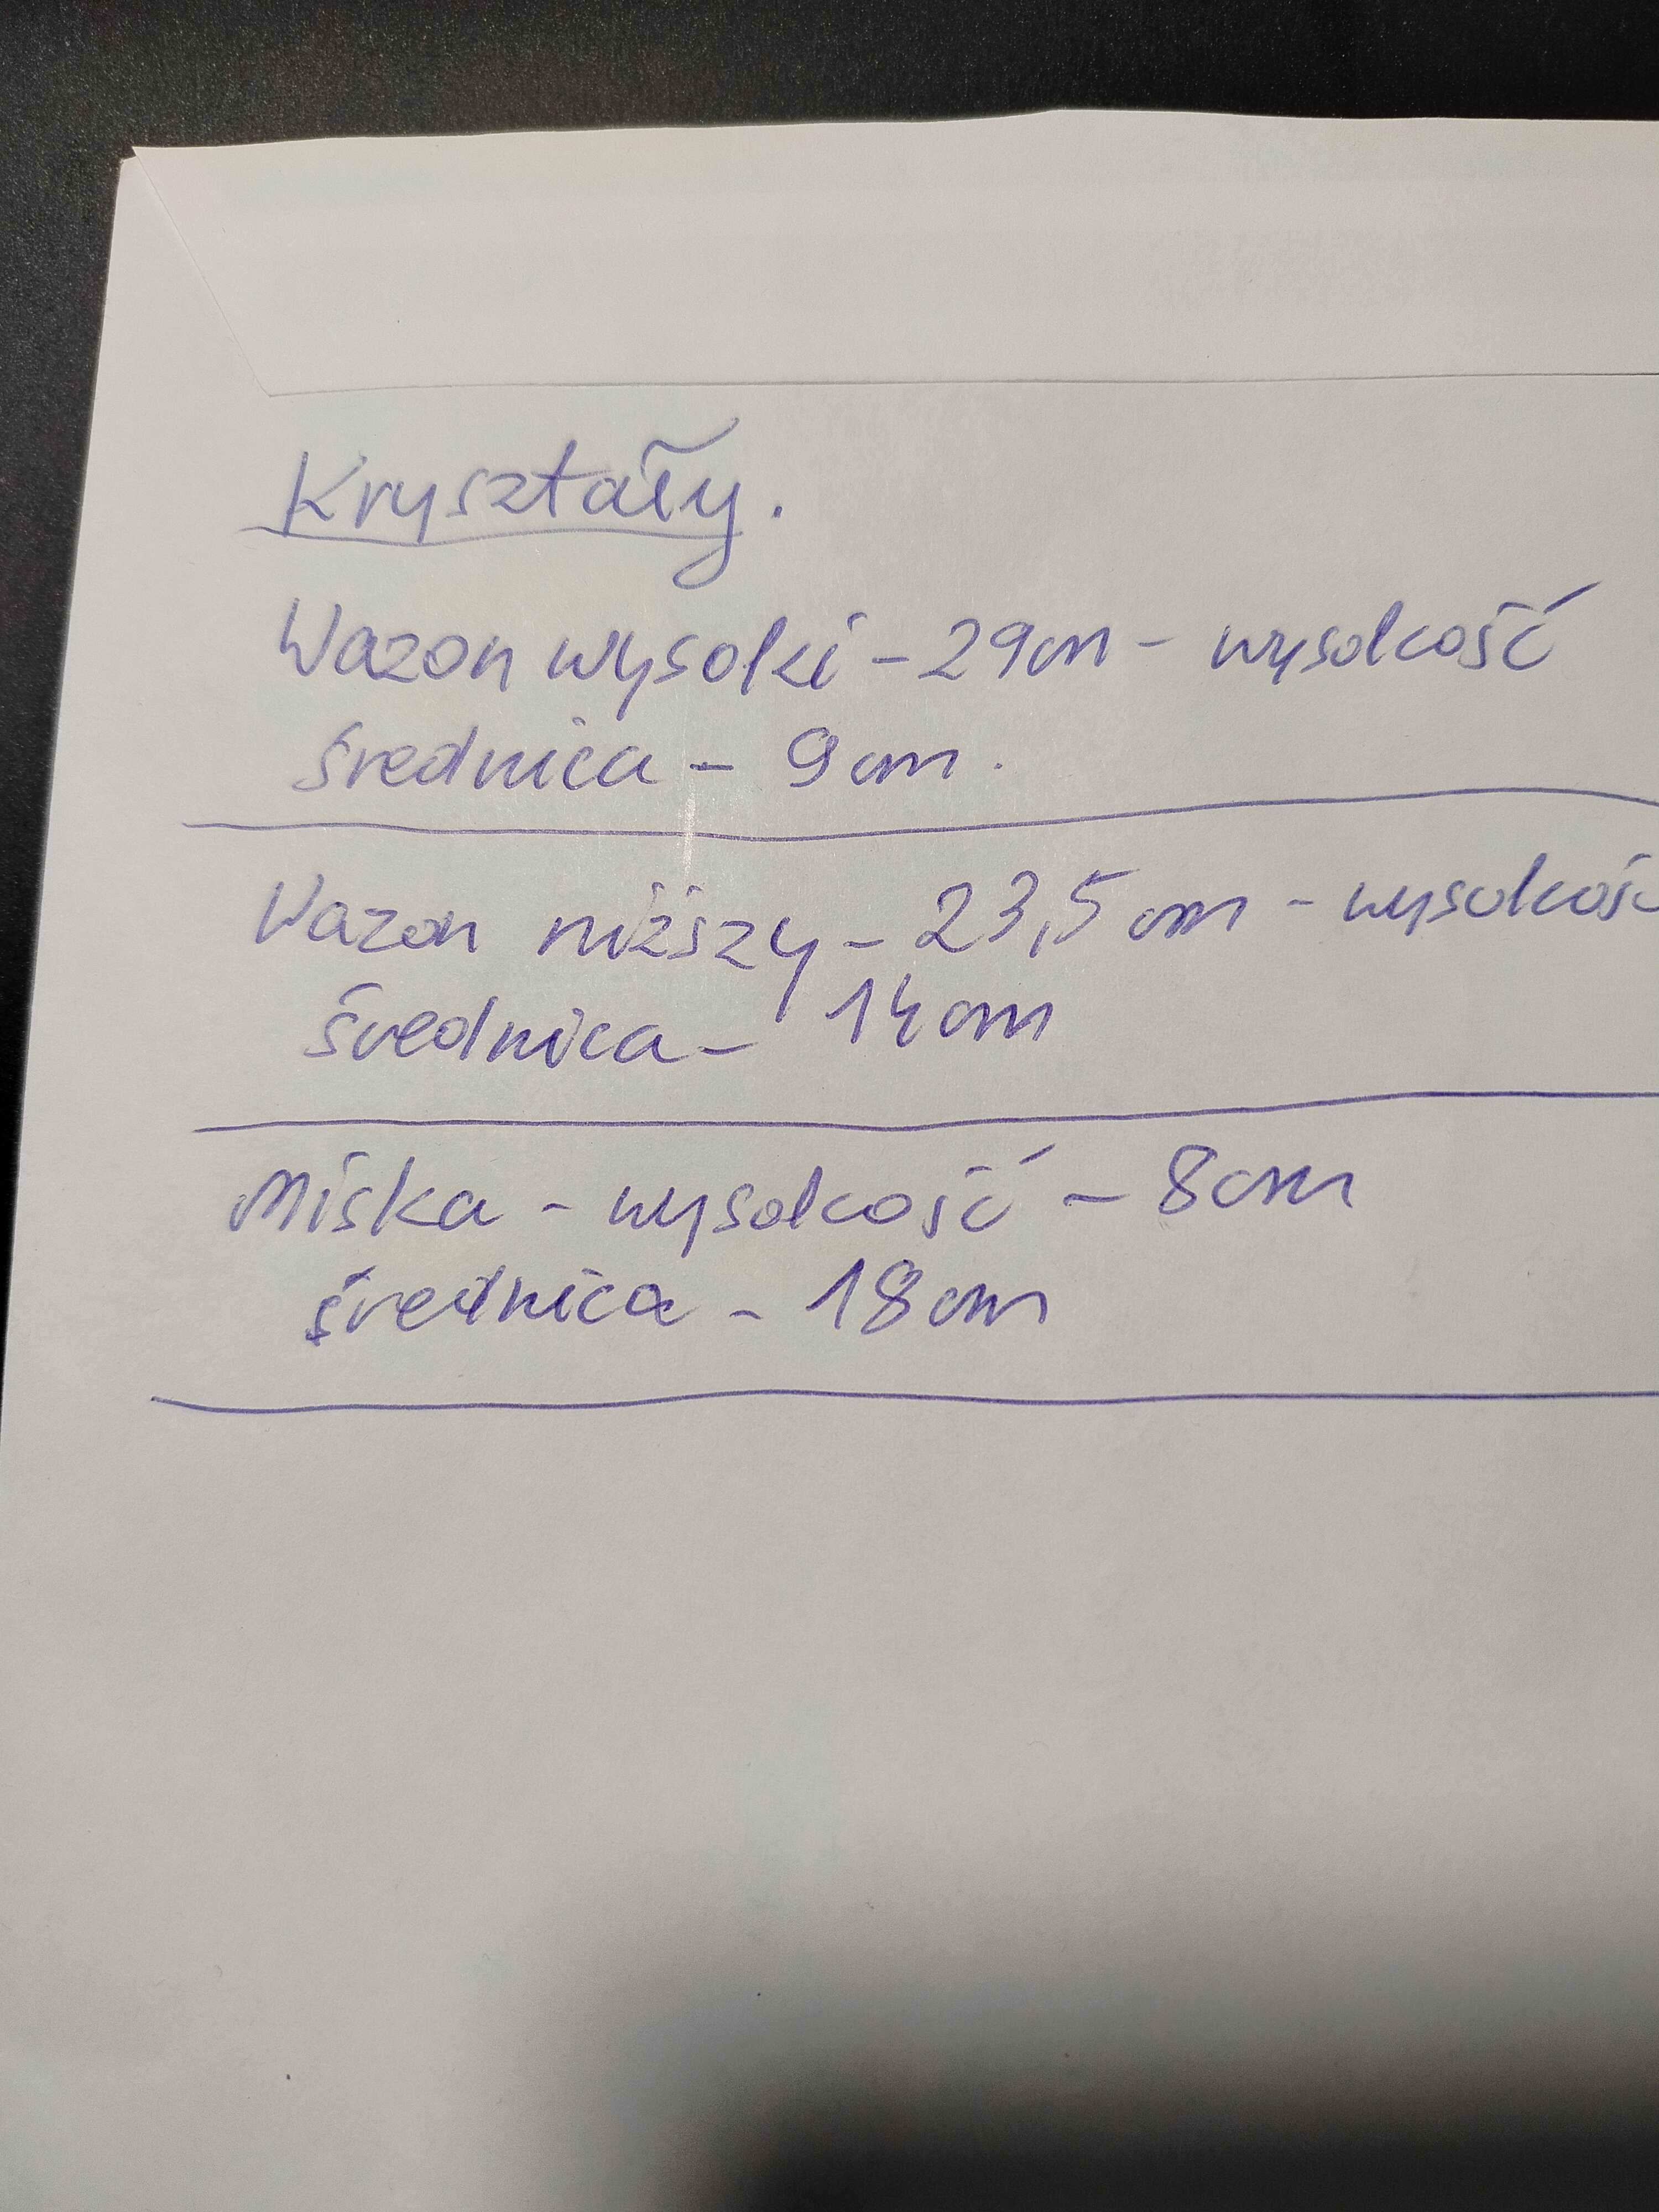 Kryształy.
Wazon wysoki - 29cm - wysokość
średnica - 9cm.
Wazon niższy - 23,5cm - wysokość
średnica - 14cm
Miska - wysokość - 8cm
średnica - 18cm